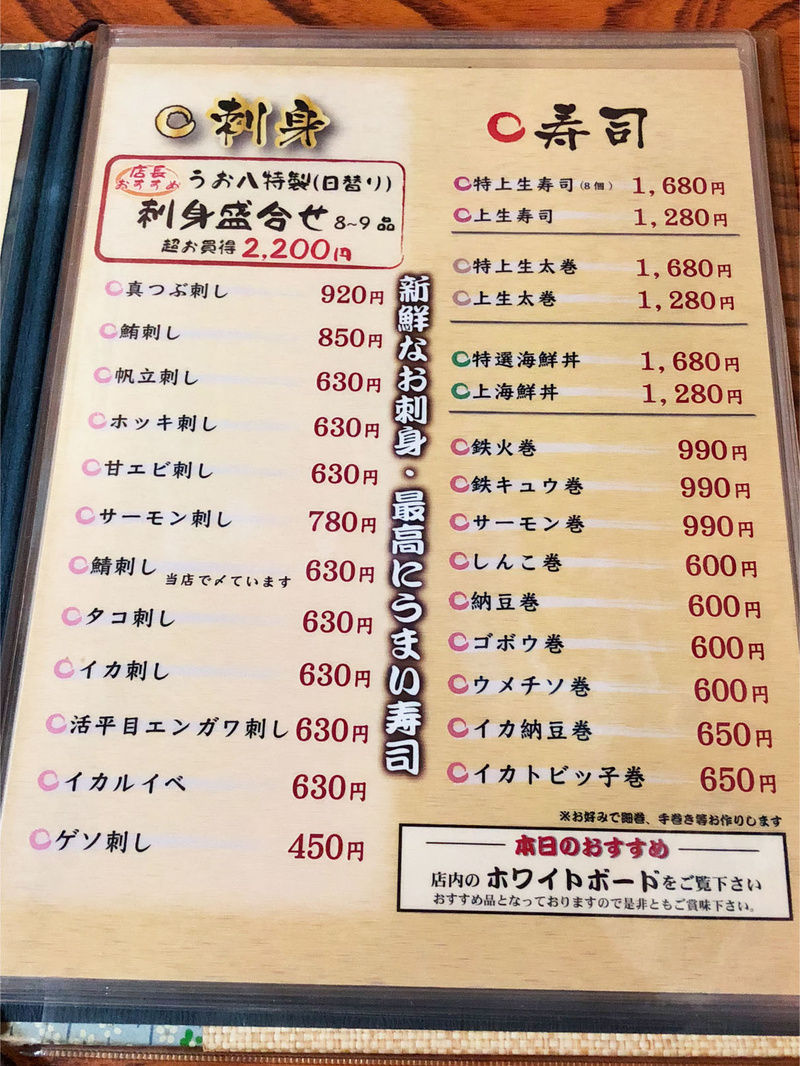 刺身
店長おすすめ
うお八特製(日替り)
刺身盛合せ 8~9品
超お買得 2,200円
真つぶ刺し 920円
鮪刺し 850円
帆立刺し 630円
ホッキ刺し 630円
甘エビ刺し 630円
サーモン刺し 780円
鯖刺し 当店で〆ています 630円
タコ刺し 630円
イカ刺し 630円
活平目エンガワ刺し 630円
イカルイベ 630円
ゲソ刺し 450円
新鮮なお刺身・最高にうまい寿司
寿司
特上生寿司(8個) 1,680円
上生寿司 1,280円
特上生太巻 1,680円
上生太巻 1,280円
特選海鮮丼 1,680円
上海鮮丼 1,280円
鉄火巻 990円
鉄キュウ巻 990円
サーモン巻 990円
しんこ巻 600円
納豆巻 600円
ゴボウ巻 600円
ウメチソ巻 600円
イカ納豆巻 650円
イカトビッ子巻 650円
※お好みで細巻、手巻き等お作りします
本日のおすすめ
店内のホワイトボードをご覧下さい
おすすめ品となっておりますので是非ともご賞味下さい。